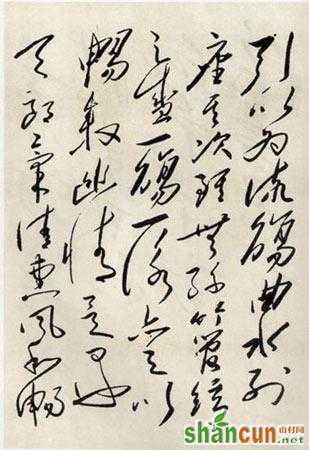 引以為流觴曲水列
座其次雖無絲竹管絃
之盛一觴一詠亦足以
暢敘幽情是日也
天朗氣清惠風和暢
shancun 山村网
.net